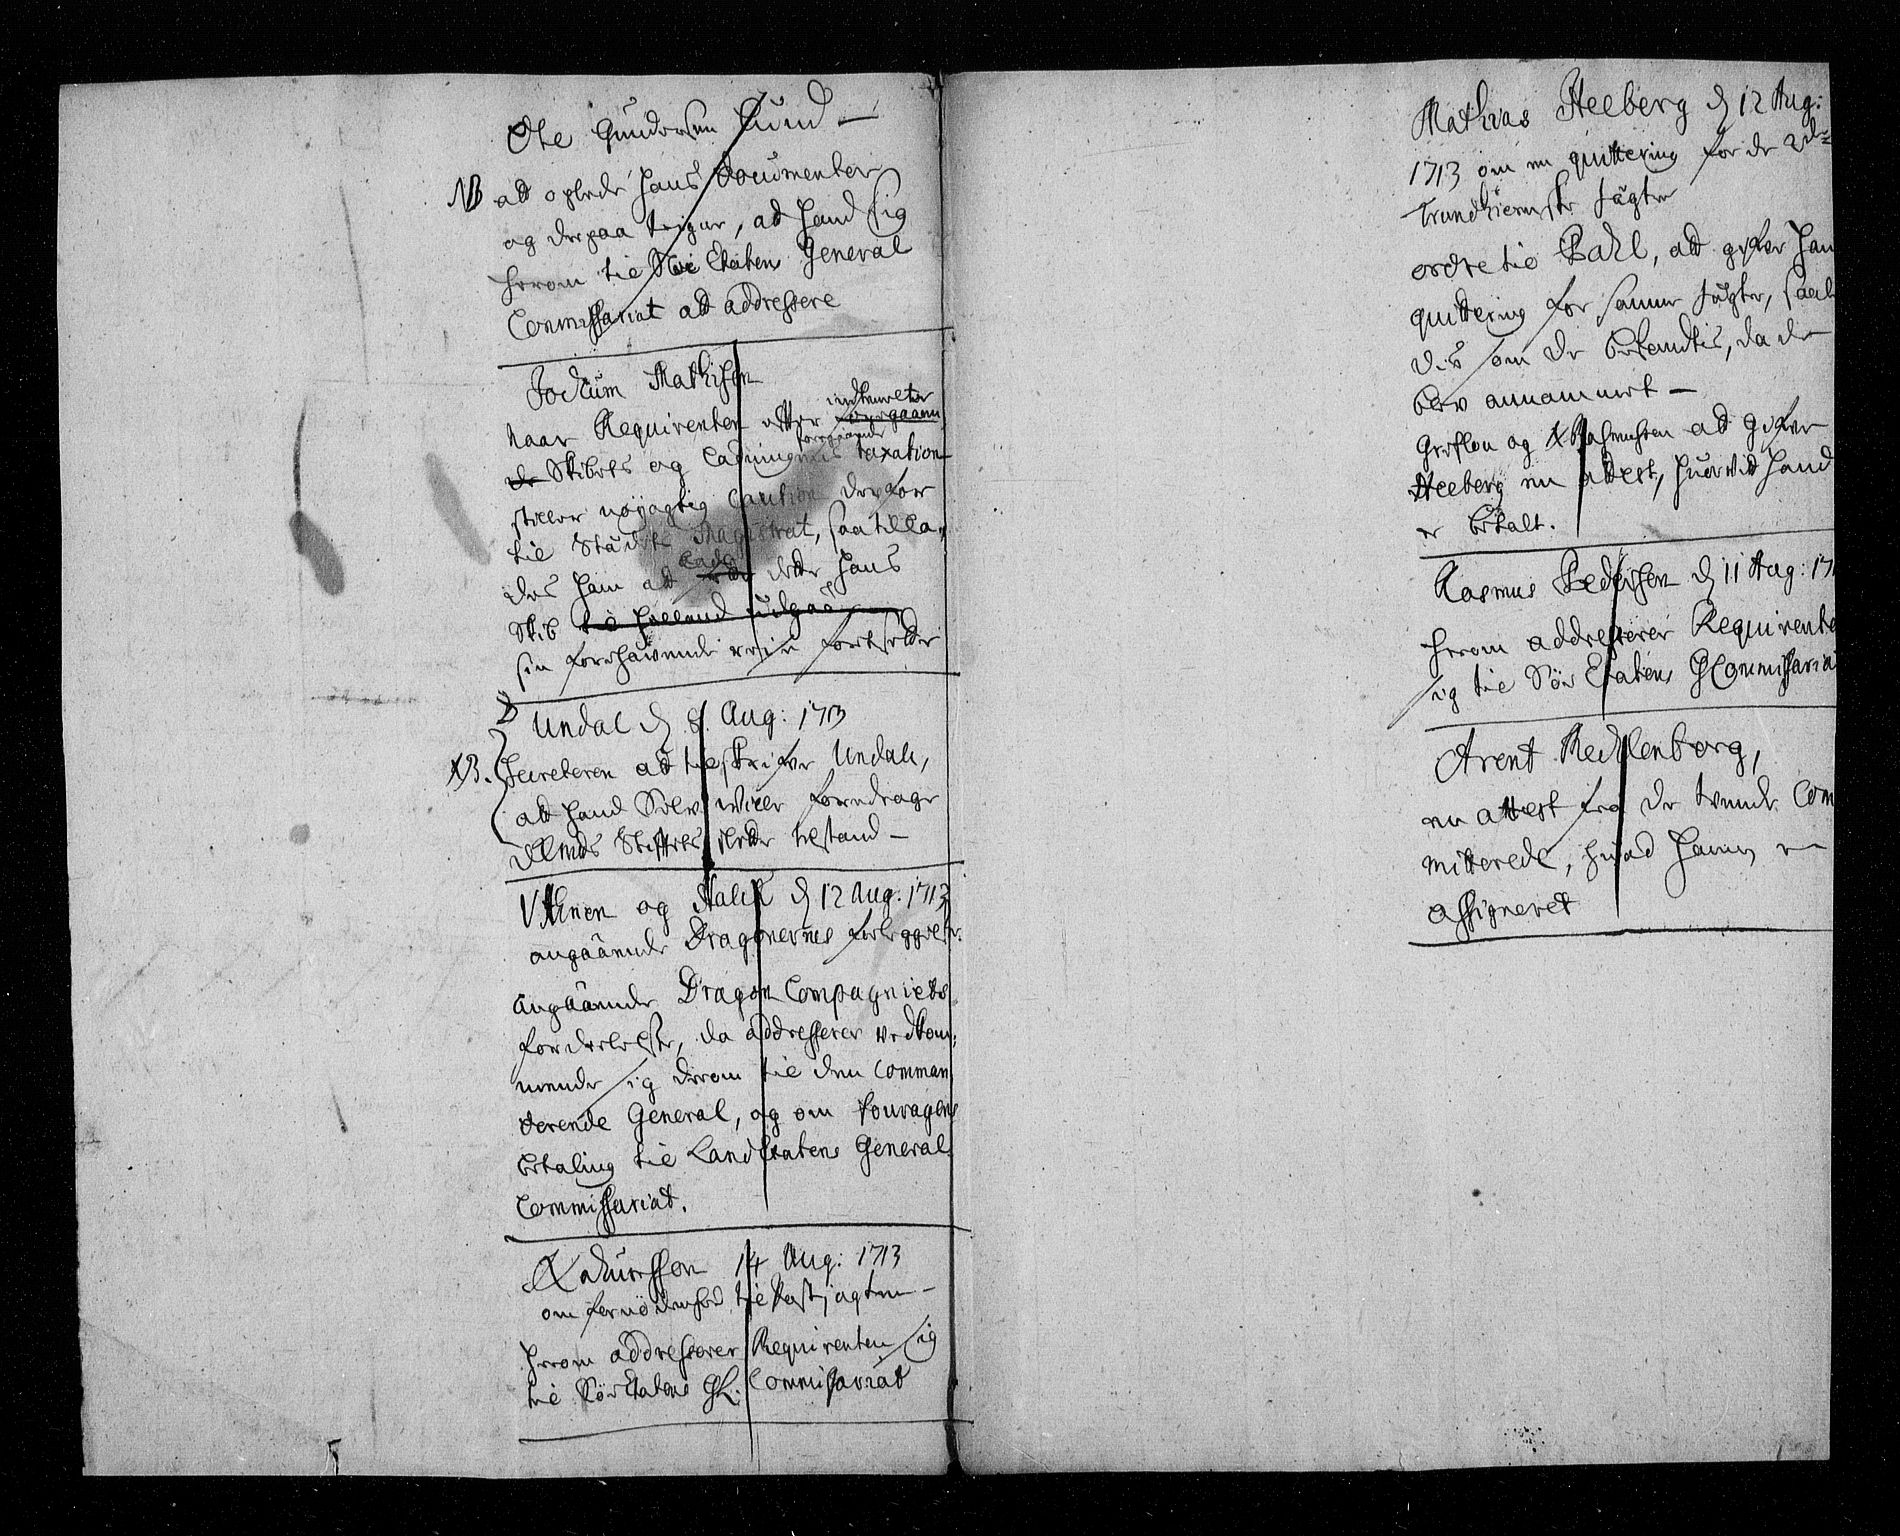 Ole Gundersen Lund —
NB att oplede hans Documenter
og derpaa teigne, at hand sig
herom til Söe Etatens General
Commissariat att addressere
Jochum Mathisen
naar Requirenten efter indkureter
foregaaende
de Skibets og Ladningens taxation
støller nøyagtig Caution derfor
til Stædets Magistrat, saa tilla,
des ham att lade dette hans
Skib til udgaa
sin forehavende reise fortsette
Undal d 8 Aug: 1713
NB. Secreteren att tilskrifve Undal,
att hand Selv ville foredrage
Stiftets slette tilstand —
og Halck d 12 Aug. 1713
angaaende Dragonernes
angaaende Dragon Compagniets
fordeelelse, da addresserer vedkom,
mende sig derom til den Comman
derende General, og om fouragens
betaling til LandEtatens General
Commissariat.
14 Aug: 1713
om fornödenhed til Postjagten —
herom addresserer Requirenten sig
til SöeEtatens GL: Commissariat
Mathias Heeberg d 12 Aug:
1713 om en quittering for de 2de
Trundhiemske Jagter
ordre til Dahl, att gifve ham
quittering for samme Jagter, saale
des som de befandtes, da de
blev annammet —
Grefsen og Rasmussen att gifve
Heeberg en attest, huorvit hand
er betalt.
Rasmus Pedersen d 11 Aug: 171
herom addresserer Requirente
sig til Söe Etatens GCommissaria
Arent Mecklenborg,
en attest fra de tvende Com
mitterede, huad hannem er
assigneret